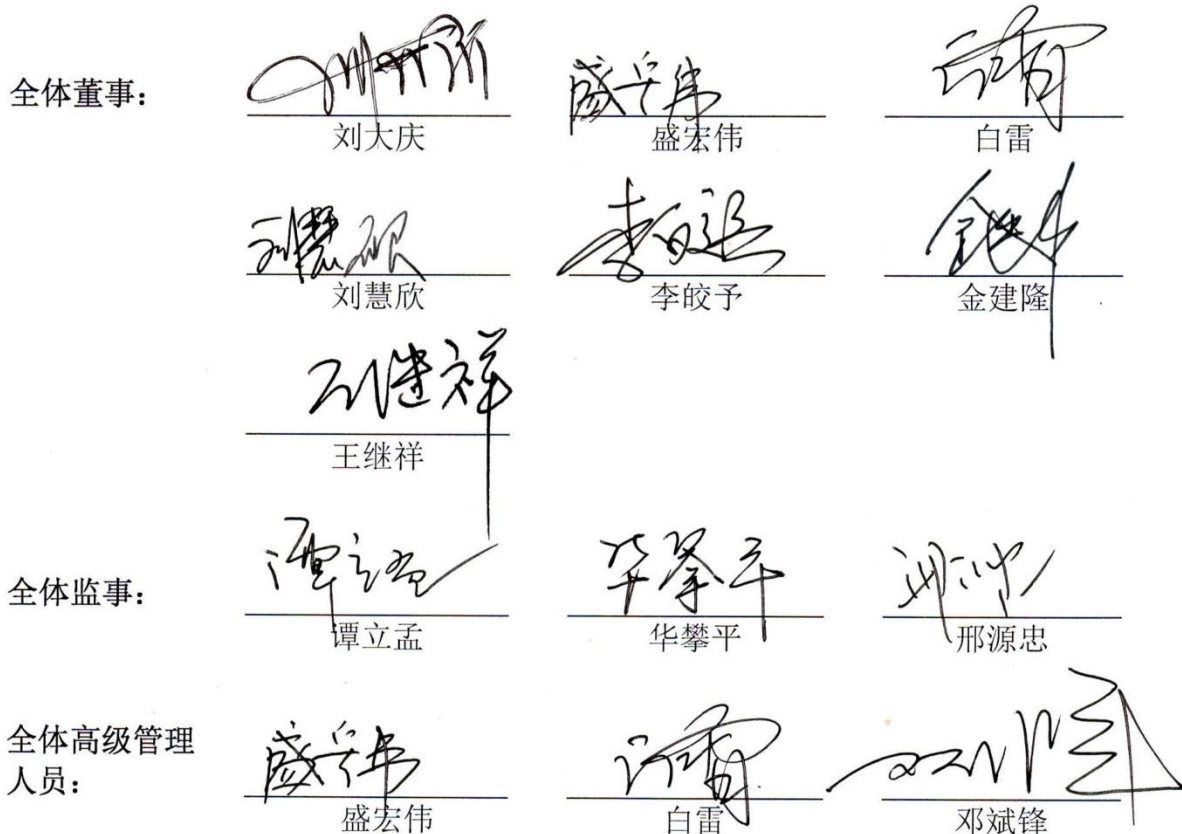 全体董事:
刘大庆 盛宏伟 白雷
刘慧欣 李皎予 金建隆
王继祥
全体监事:
谭立孟 华攀平 邢源忠
全体高级管理
人员:
盛宏伟 白雷 邓斌锋